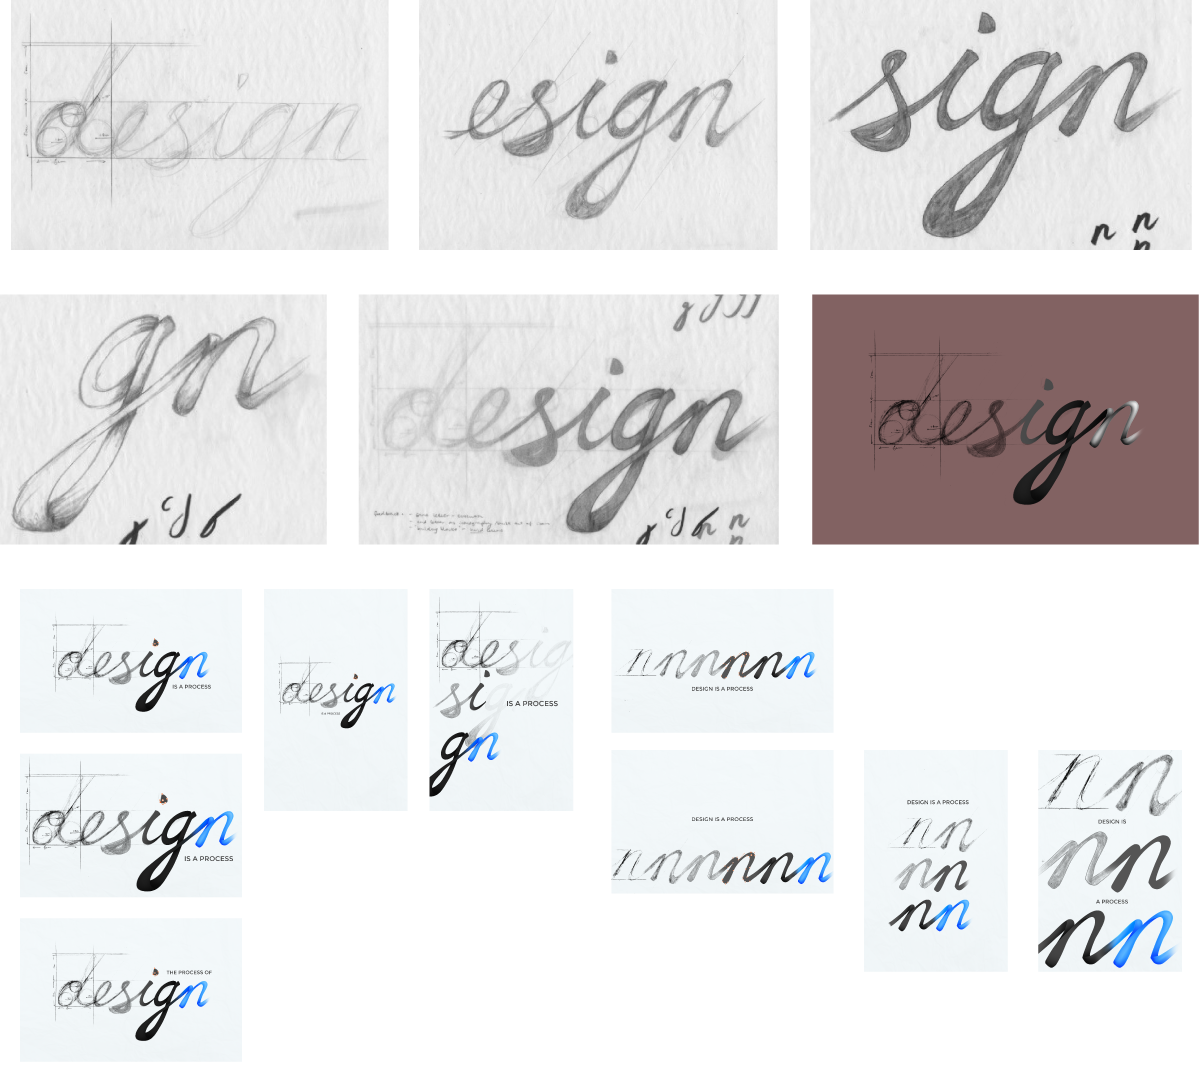 design
esign
sign
n n
n
gn
design
design
design
IS A PROCESS
design
IS A PROCESS
design
si
IS A PROCESS
gn
nnnnnnn
DESIGN IS A PROCESS
design
IS A PROCESS
DESIGN IS A PROCESS
nnnnnnn
DESIGN IS A PROCESS
nn
nn
nn
nn
DESIGN IS
nn
A PROCESS
nn
THE PROCESS OF
design